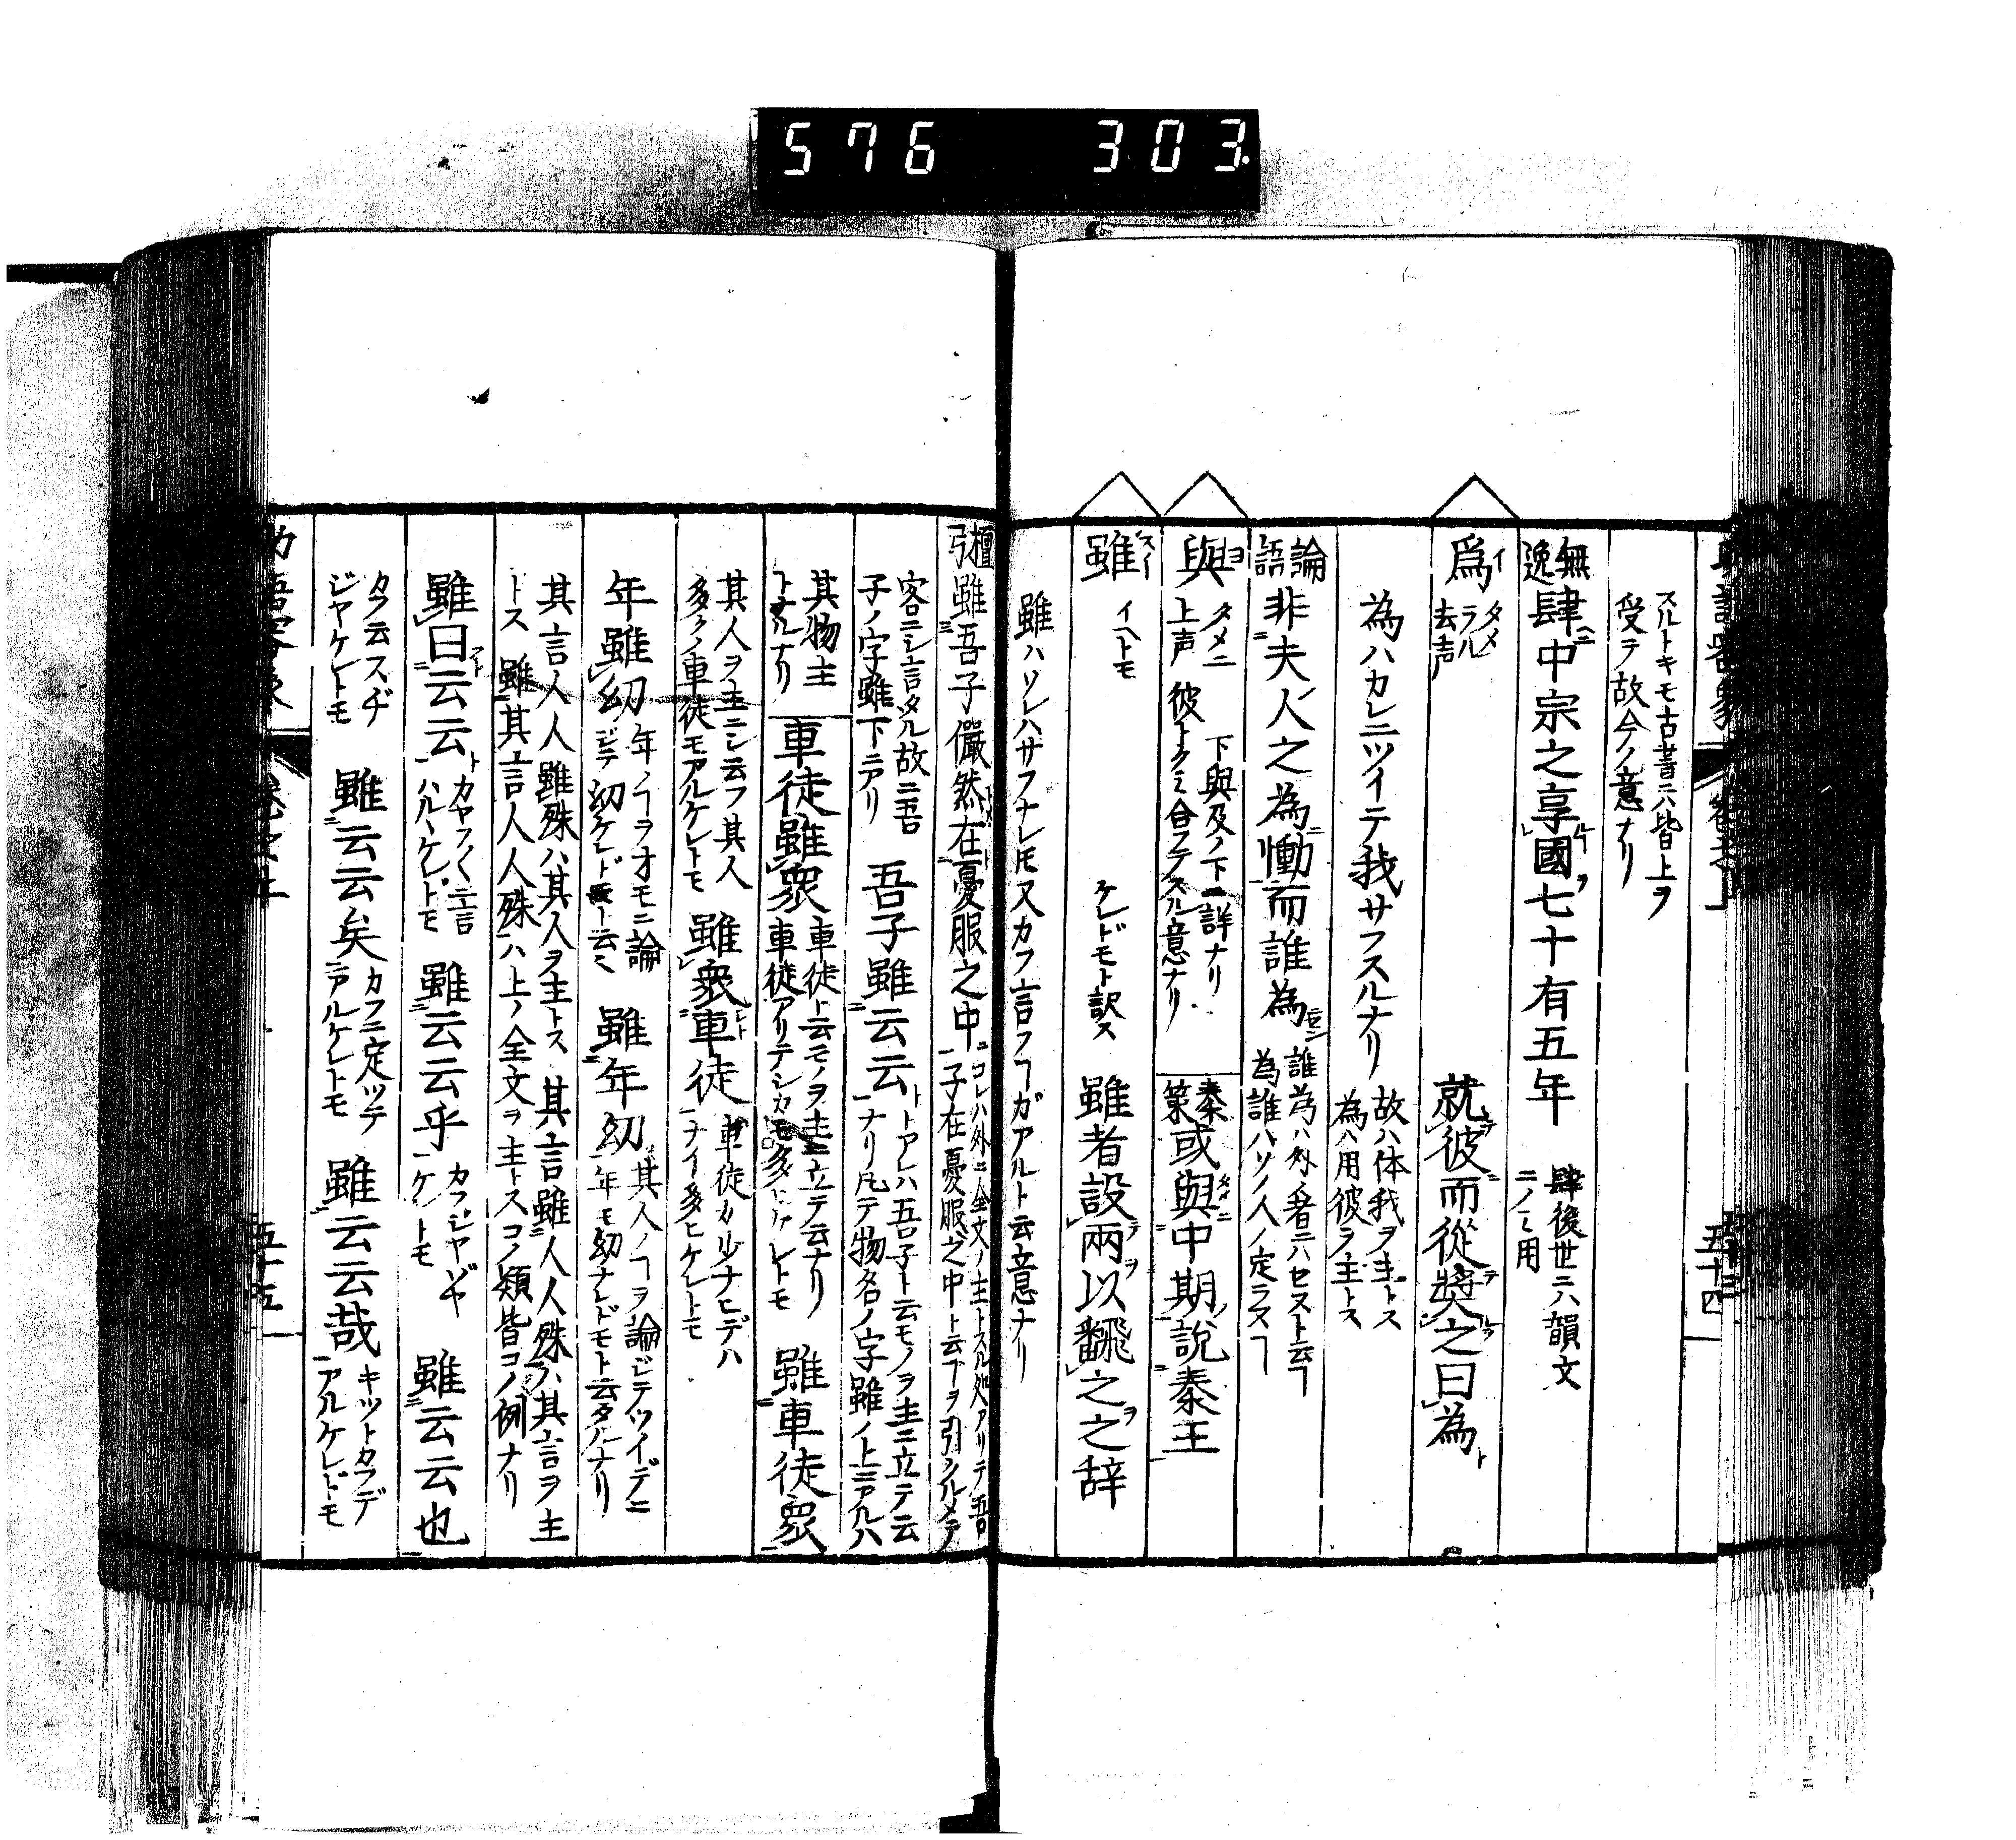 576 303
スルトキモ古書ニハ皆上ヲ
受テ故今ノ意ナリ
無逸 肆中宗之享國七十有五年 肆後世ニハ韻文
ニノミ用
爲 タメ 去声 就彼而從奬之曰為
為ハカレニツイテ我サフスルナリ 故ハ体我ヲ主トス
為ハ用彼ヲ主トス
論語 非夫人之為慟而誰為 誰為ハ外ノ者ニハセヌト云フ
為誰ハソノ人ノ定ラヌ
與 タメニ 上声 下與及ノ下ニ詳ナリ
彼トクミ合フテスル意ナリ 秦策 或與中期説秦王
雖 イヘトモ ケレドモト訳ス 雖者設兩以飜之之辞
雖ハソレハサフナレ𪜈又カフ言フヿガアルト云意ナリ
檀弓 雖吾子儼然在憂服之中 コレハ外ニ全文ノ主トスル処アリテ吾
子在憂服之中ト云フヲ引
客ニシ言タル故ニ吾
子ノ字雖下ニアリ 吾子雖云云 トアレハ吾子ト云モノヲ主ニ立テ云
ナリ凡テ物名ノ字雖ノ上ニアルハ
其物主
トナルナリ 車徒雖衆 車徒ト云モノヲ主ニ立テ云ナリ
車徒アリテシカモ多ケレトモ 雖車徒衆
其人ヲ主ニシ云フ其人
多クノ車徒モアルケレトモ 雖衆車徒 車徒カ少ナヒデハ
ナイ多ヒケレトモ
年雖幼 年ノヿヲオモニ論
ジテ幼ケレドモト云 雖年幼 其人ノヿヲ論ジテツイデニ
年モ幼ナレドモト云タルナリ
其言人人雖殊ハ其人ヲ主トス 其言雖人人殊ハ其言ヲ主
トス 雖其言人人殊ハ上ノ全文ヲ主トスコノ類皆コノ例ナリ
雖曰云云 カヤフ〱ニ言
ハルヽケレトモ 雖云云乎 カフジヤガヤ
ケレトモ 雖云云也
カフ云スヂ
ジヤケレトモ 雖云云矣 カフニ定ツテ
アルケレトモ 雖云云哉 キツトカフデ
アルケレドモ
五十四